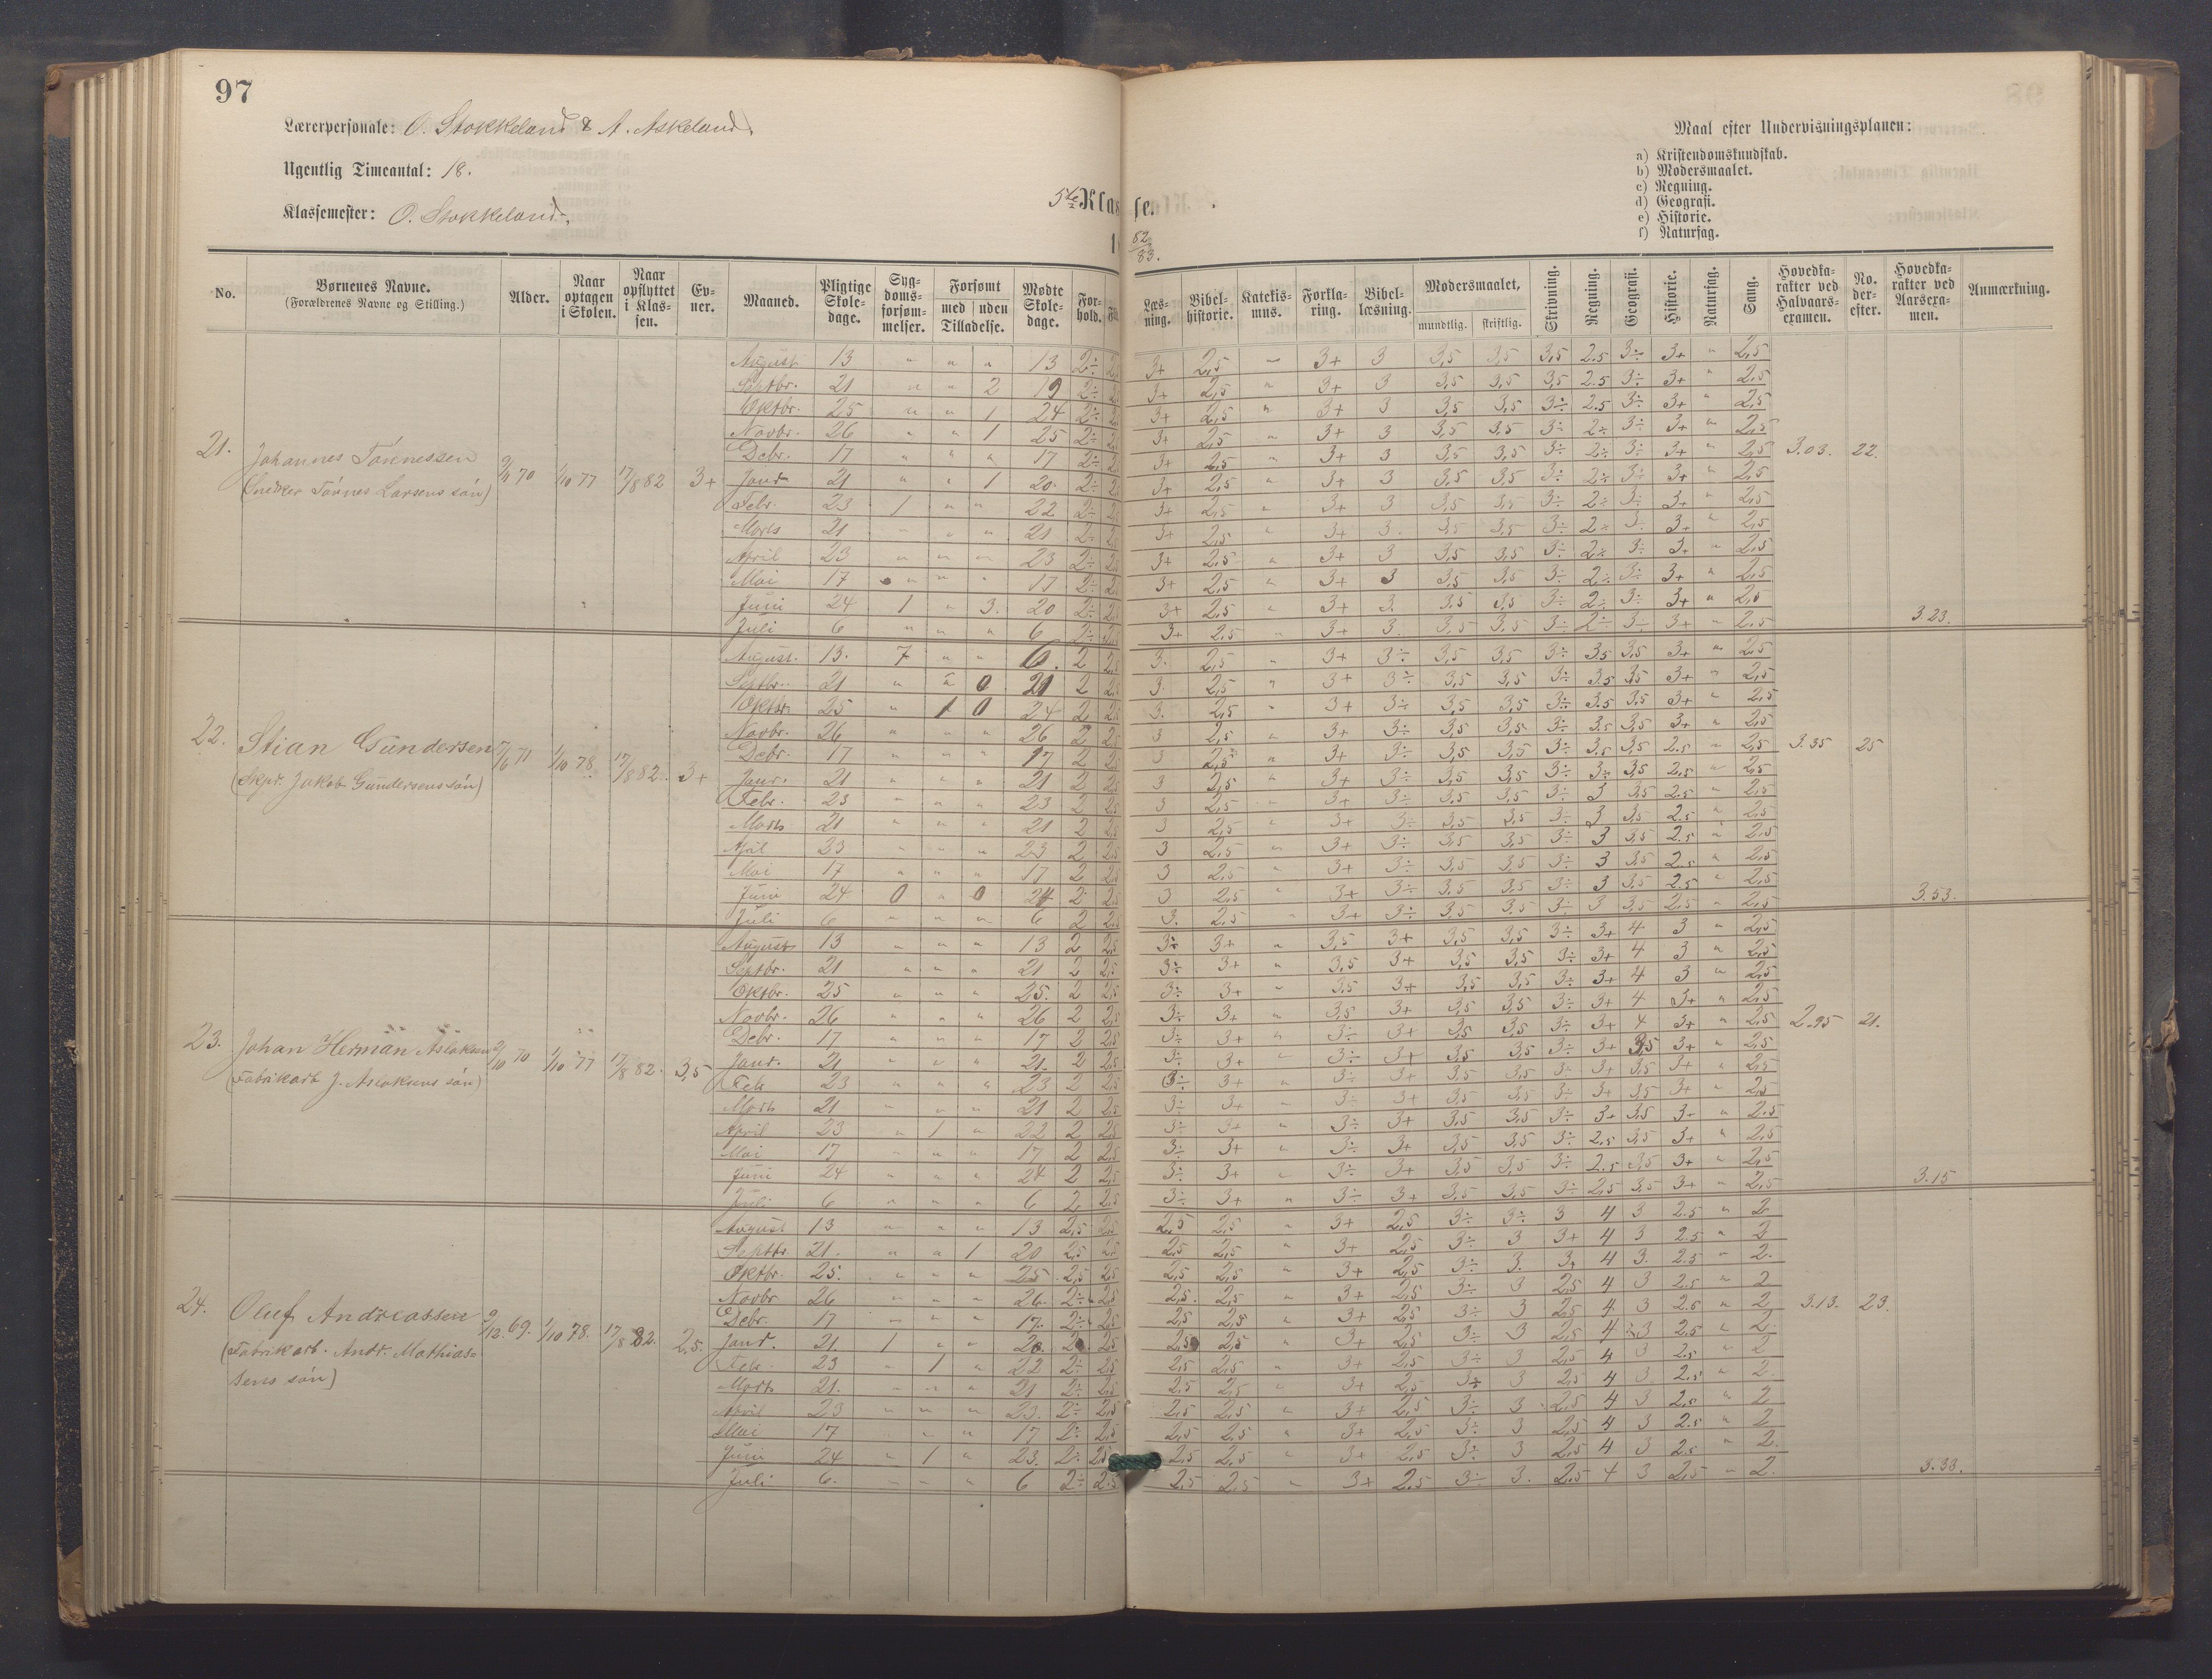 97
Lærerpersonale: O. Stokkeland & A. Askeland.
Ugentlig Timeantal: 18.
Klassemester: O. Stokkeland.
5te Klas se.
82/83.
Maal efter Undervisningsplanen:
a) Kristendomskundskab.
b) Modersmaalet.
c) Regning.
d) Geografi.
e) Historie.
f) Naturfag.
No. Børnenes Navne. (Forældrenes Navne og Stilling.) Alder. Naar optagen i Skolen. Naar opflyttet i Klassen. Evner. Maaned. Pligtige Skoledage. Sygdomsforsømmelser. Forsømt med uden Tilladelse. Mødte Skoledage. Forhold. Læsning. Bibelhistorie. Katekismus. Forklaring. Bibellæsning. Modersmaalet, mundtlig. skriftlig. Skrivning. Regning. Geografi. Historie. Naturfag. Sang. Hovedkarakter ved Halvaarsexamen. No. derefter. Hovedkarakter ved Aarsexamen. Anmærkning.
21. Johannes Tónnessen
(Snedker Tónnes Larsens són)
70 1/10 77 17/8 82 3+
August 13 " " " 13 2÷ 3+ 2,5 " 3+ 3 3,5 3,5 3,5 2.5 3÷ 3+ " 2,5
Septbr. 21 " " 2 19 2÷ 3+ 2,5 " 3+ 3 3,5 3,5 3,5 2.5 3÷ 3+ " 2,5
Oktbr. 25 " " 1 24 2÷ 3+ 2,5 " 3+ 3 3,5 3,5 3÷ 2.5 3÷ 3+ " 2,5
Novbr. 26 " " 1 25 2÷ 3+ 2,5 " 3+ 3 3,5 3,5 3÷ 2÷ 3÷ 3+ " 2,5
Debr. 17 " " " 17 2÷ 3+ 2,5 " 3+ 3 3,5 3,5 3÷ 2÷ 3÷ 3+ " 2,5 3.03. 22.
Janr 21 " " 1 20. 2÷ 3+ 2,5 " 3+ 3 3,5 3,5 3÷ 2÷ 3÷ 3+ " 2,5
Febr. 23 1 " " 22 2÷ 3+ 2,5 " 3+ 3 3,5 3,5 3÷ 2÷ 3÷ 3+ " 2,5
Marts 21 " " " 21 2÷ 3+ 2,5 " 3+ 3. 3,5 3,5 3÷ 2÷ 3÷ 3+ " 2,5
April 23 " " " 23 2÷ 3+ 2,5 " 3+ 3 3,5 3,5 3÷ 2÷ 3÷ 3+ " 2,5
Mai 17 " " " 17 2÷ 3+ 2,5 " 3+ 3 3,5 3,5 3÷ 2÷ 3÷ 3+ " 2,5
Juni 24 1 " 3. 20 2÷ 3+ 2,5 " 3+ 3. 3,5 3,5 3÷ 2÷ 3÷ 3+ " 2,5
Juli 6 " " " 6 2÷ 3+ 2,5 " 3+ 3. 3,5 3,5 3÷ 2÷ 3÷ 3+ " 2,5 3.23.
22. Stian Gundersen
(Skpr. Jakob Gundersens són)
7/6 71 1/10 78. 17/8 82. 3+
August. 13. 7 " " 6. 2 2,5 3. 2,5 " 3+ 3÷ 3,5 3,5 3÷ 3,5 3,5 3+ " 2,5
Septbr. 21 " " 0 21 2 2,5 3. 2,5 " 3+ 3÷ 3,5 3,5 3÷ 3.5 3,5 3+ " 2,5
Oktbr. 25 " 1 0 24 2 2,5 3. 2,5 " 3+ 3÷ 3,5 3,5 3÷ 3.5 3,5 3+ " 2,5
Novbr. 26 " " " 26 2 2,5 3 2,5 " 3+ 3÷ 3,5 3,5 3÷ 3,5 3,5 3+ " 2,5
Debr. 17 " " " 17 2 2,5 3 2,5 " 3+ 3÷ 3,5 3,5 3÷ 3,5 3,5 2.5 " 2,5 3.35 25
Janr. 21 " " " 21 2 2,5 3 2,5 " 3+ 3÷ 3,5 3,5 3÷ 3÷ 3,5 2,5 " 2,5
Febr. 23 " " " 23 2 2,5 3 2,5 " 3+ 3÷ 3,5 3,5 3÷ 3 3,5 2.5 " 2,5
Marts 21 " " " 21 2 2,5 3 2,5 " 3+ 3÷ 3,5 3,5 3÷ 3 3,5 2.5 " 2,5
April 23 " " " 23 2 2,5 3 2,5 " 3+ 3÷ 3,5 3,5 3÷ 3 3,5 2.5 " 2,5
Mai 17 " " " 17 2 2,5 3 2,5 " 3+ 3÷ 3,5 3,5 3÷ 3 3,5 2.5 " 2,5
Juni 24 0 " 0 24 2 2,5 3 2,5 " 3+ 3÷ 3,5 3,5 3÷ 3 3,5 2.5 " 2,5
Juli 6 " " " 6 2 2,5 3. 2,5 " 3+ 3÷ 3,5 3,5 3÷ 3 3,5 2,5 " 2,5 3.53.
23. Johan Herman Aslaksen
(Fabrikarb J. Aslaksens són)
2/10 70 1/10 77 17/8 82. 3,5
August 13 " " " 13 2 2,5 3÷ 3+ " 3,5 3+ 3,5 3,5 3÷ 3+ 4 3 " 2,5
Septbr. 21 " " " 21 2 2,5 3÷ 3+ " 3,5 3+ 3,5 3,5 3÷ 3+ 4 3 " 2,5
Oktbr. 25 " " " 25. 2 2,5 3÷ 3+ " 3,5 3+ 3,5 3,5 3÷ 3+ 4 3 " 2,5
Novbr. 26 " " " 26 2 2,5 3÷ 3+ " 3,5 3+ 3,5 3,5 3÷ 3+ 4 3+ " 2,5
Debr. 17 " " " 17 2 2,5 3÷ 3+ " 3÷ 3+ 3,5 3,5 3÷ 3+ 4 3+ " 2,5 2.95 21.
Janr. 21 " " " 21. 2 2,5 3÷ 3+ " 3÷ 3+ 3,5 3,5 3÷ 3+ 3,5 3+ " 2,5
Feb 23 " " " 23 2 2,5 3÷ 3+ " 3÷ 3+ 3,5 3,5 3÷ 3+ 3,5 3+ " 2,5
Marts 21 " " " 21 2 2,5 3÷ 3+ " 3÷ 3+ 3,5 3,5 3÷ 3+ 3,5 3+ " 2,5
April 23 " 1 " 22 2 2,5 3÷ 3+ " 3÷ 3+ 3,5 3,5 3÷ 3+ 3,5 3+ " 2,5
Mai 17 " " " 17 2 2,5 3÷ 3+ " 3÷ 3+ 3,5 3,5 3÷ 2,5 3,5 3+ " 2,5
Juni 24 " " " 24 2 2,5 3÷ 3+ " 3÷ 3+ 3,5 3,5 3÷ 2.5 3,5 3+ " 2,5
Juli 6 " " " 6 2 2,5 3÷ 3+ " 3÷ 3+ 3,5 3,5 3÷ 2,5 3,5 3+ " 2,5 3.15
24. Oluf Andreassen
(Fabrikarb. Andr. Mathias=
sens són)
9/12. 69. 1/10 78. 17/8 82. 2,5.
August 13 " " " 13 2,5 2,5 2,5 2,5 " 3+ 2,5 3÷ 3÷ 3 4 3 2.5 " 2
Septbr. 21. " " 1 20 2,5 2,5 2,5 2,5 " 3+ 2,5 3÷ 3 3+ 4 3 2.5 " 2
Oktbr. 25. " " " 25 2,5 2,5 2,5 2,5 " 3+ 2,5 3÷ 3. 3+ 4 3. 2.5 " 2.
Novbr 26 " " " 26. 2÷ 2,5 2,5. 2,5 " 3+ 2,5 3÷ 3 2,5 4 3 2,5 " 2
Debr. 17 " " " 17. 2÷ 2,5 2,5 2,5 " 3+ 2,5 3÷ 3 2,5 4 3 2.5 " 2 3.13. 23.
Janr. 21. 1 " " 20. 2,5 2,5 2,5 " 3+ 2,5 3÷ 3 2,5 4 3 2.5 " 2.
Febr. 23 " 1 " 22 2÷ 2,5 2,5 2,5 " 3+ 2,5 3÷ 3 2,5 4 3 2.5 " 2
Marts 21. " " " 21 2÷ 2,5 2,5 2,5 " 3+ 2,5 3÷ 3 2,5 4 3 2.5 " 2.
April 23 " " " 23. 2÷ 2,5 2,5 2,5 " 3+ 2,5 3÷ 3 2,5 4 3 2,5 " 2
Mai 17 " " " 17 2÷ 2,5 2,5 2,5 " 3+ 2,5 3÷ 3 2,5 4 3 2.5 " 2
Juni 24 " 1 " 23. 2÷ 2,5 2,5 2,5 " 3+ 2,5 3÷ 3 2,5 4 3 2.5 " 2.
Juli 6. " " " 6 2÷ 2.5 2,5 2,5 " 3+ 2,5 3÷ 3. 2.5 4 3 2,5 " 2. 3.33.